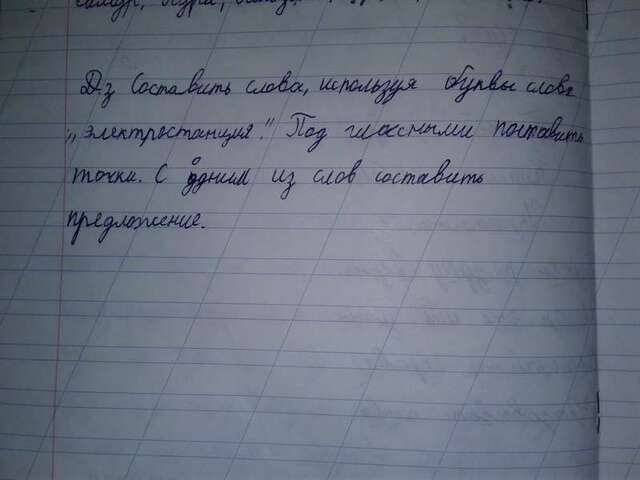 Дз Составить слова, используя буквы слова
„электростанция". Под гласными поставить
точки. С одним из слов составить
предложение.